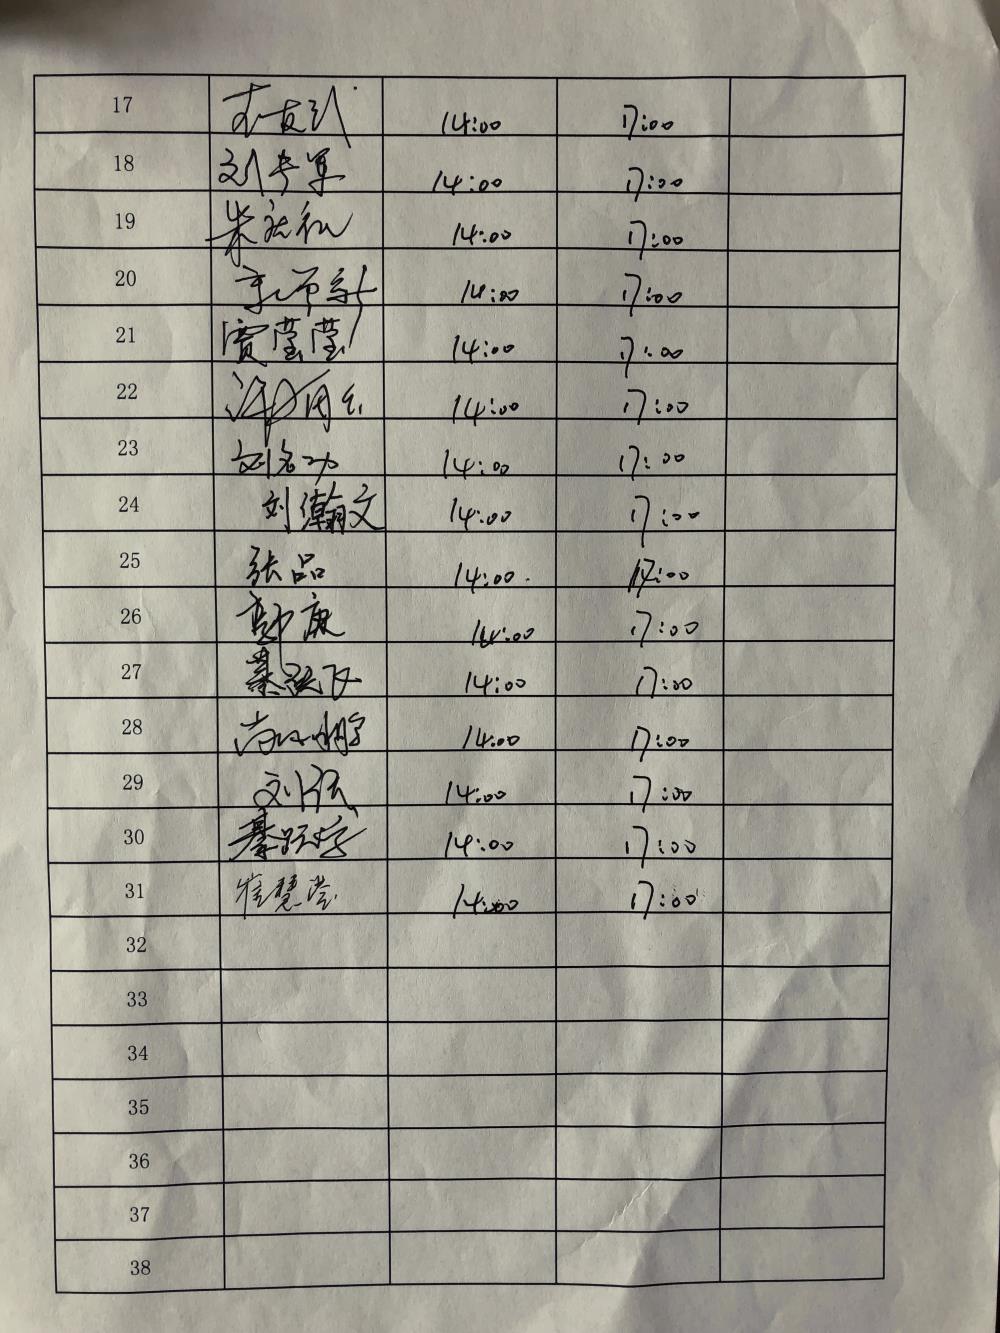 17 14:00 17:00
18 刘 军 14:00 17:00
19 朱 14:00 17:00
20 14:00 17:00
21 贾莹莹 14:00 17:00
22 14:00 17:00
23 刘 14:00 17:00
24 刘瀚文 14:00 17:00
25 张品 14:00 17:00
26 康 14:00 17:00
27 綦 飞 14:00 17:00
28 14:00 17:00
29 刘 14:00 17:00
30 綦 14:00 17:00
31 崔慧莹 14:00 17:00
32
33
34
35
36
37
38